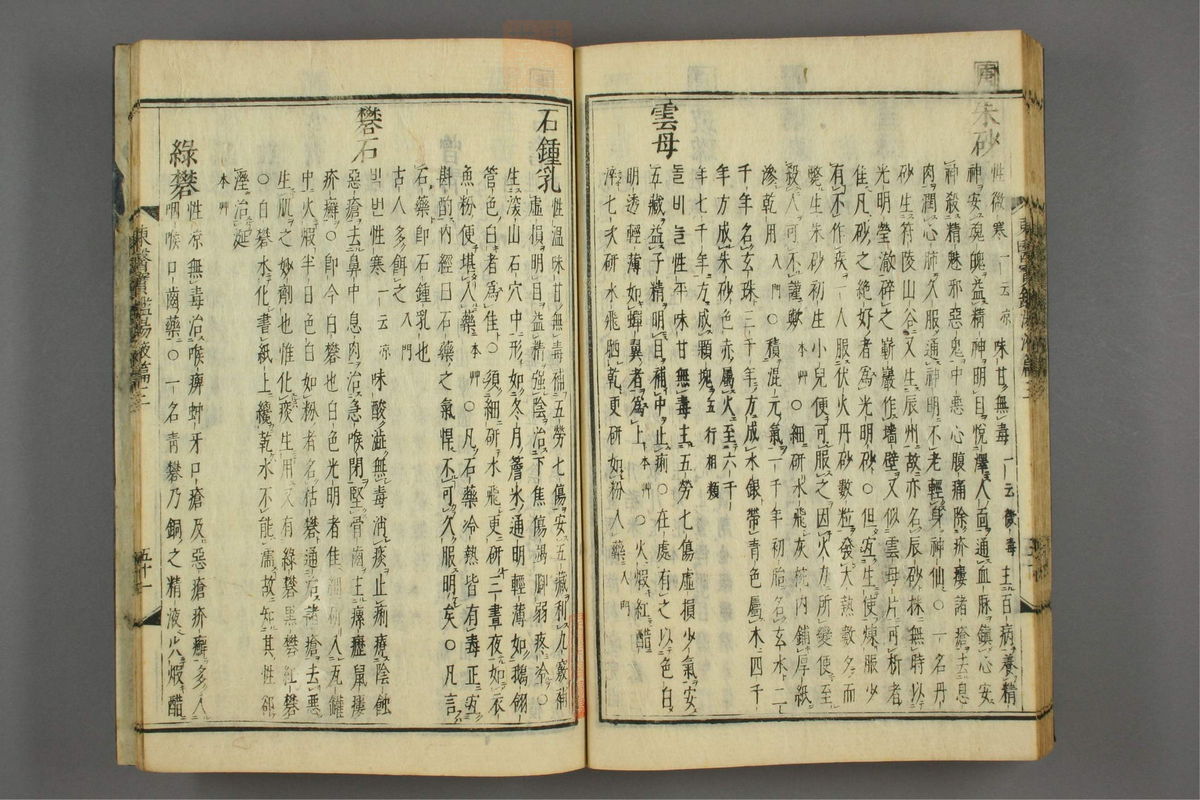 朱砂
性微寒一云凉味甘無毒一云微毒主百病養精
神安魂魄益精神明目悅澤人面通血脉鎭心安
神殺精魅邪惡鬼中惡心腹痛除疥瘻諸瘡去息
肉潤心肺久服通神明不老輕身神仙○一名丹
砂生符陵山谷又生辰州故亦名辰砂採無時以
光明瑩澈碎之嶄巖作墻壁又似雲母片可析者
佳凡砂之絶好者爲光明砂○但宜生使煉服少
有不作疾一人服伏火丹砂數粒發大熱數夕而
斃生朱砂初生小兒便可服之因火力所變便至
殺人可不謹歟本艸○細硏水飛灰椀內鋪厚紙
滲乾用入門○積混元氣一千年初胎名玄水二
千年名玄珠三千年方成水銀帶青色屬木四千
年方成朱砂色赤屬火至六千
年七千年方成顆塊五行相類
雲母
돌비늘性平味甘無毒主五勞七傷虛損少氣安
五藏益子精明目補中止痢○在處有之以色白
明透輕薄如蟬翼者爲上本艸○火煆紅醋
淬七次水飛晒乾更硏如粉入藥入門
石鍾乳
性溫味甘無毒補五勞七傷安五藏利九竅補
虛損明目益精強陰治下焦傷竭脚弱疼冷○
生深山石穴中形如冬月簷氷通明輕薄如鵝翎
管色白者爲佳○須細硏水飛更硏二三晝夜如衣
魚粉便堪入藥本艸○凡石藥冷熱皆有毒正宜
斟酌內經曰石藥之氣悍不可久服明矣○凡言
石藥卽石鍾乳也
古人多餌之入門
礬石
빅번性寒一云凉味酸澁無毒消痰止痢療陰蝕
惡瘡去鼻中息肉治急喉閉堅骨齒主瘰癧鼠瘻
疥癬○卽今白礬也白色光明者佳細硏入瓦罐
中火煆半日色白如粉者名枯礬通石諸瘡去惡
生肌之妙劑也惟化痰生用又有綠礬黑礬紅礬
○白礬水化書紙上纔乾水不能濡故知其性却
溼治涎
本艸
綠礬
性凉無毒治喉痺蚛牙口瘡及惡瘡疥癬多入
咽喉口齒藥○一名青礬乃銅之精液以醋
東醫寶鑑湯液篇三
五十一